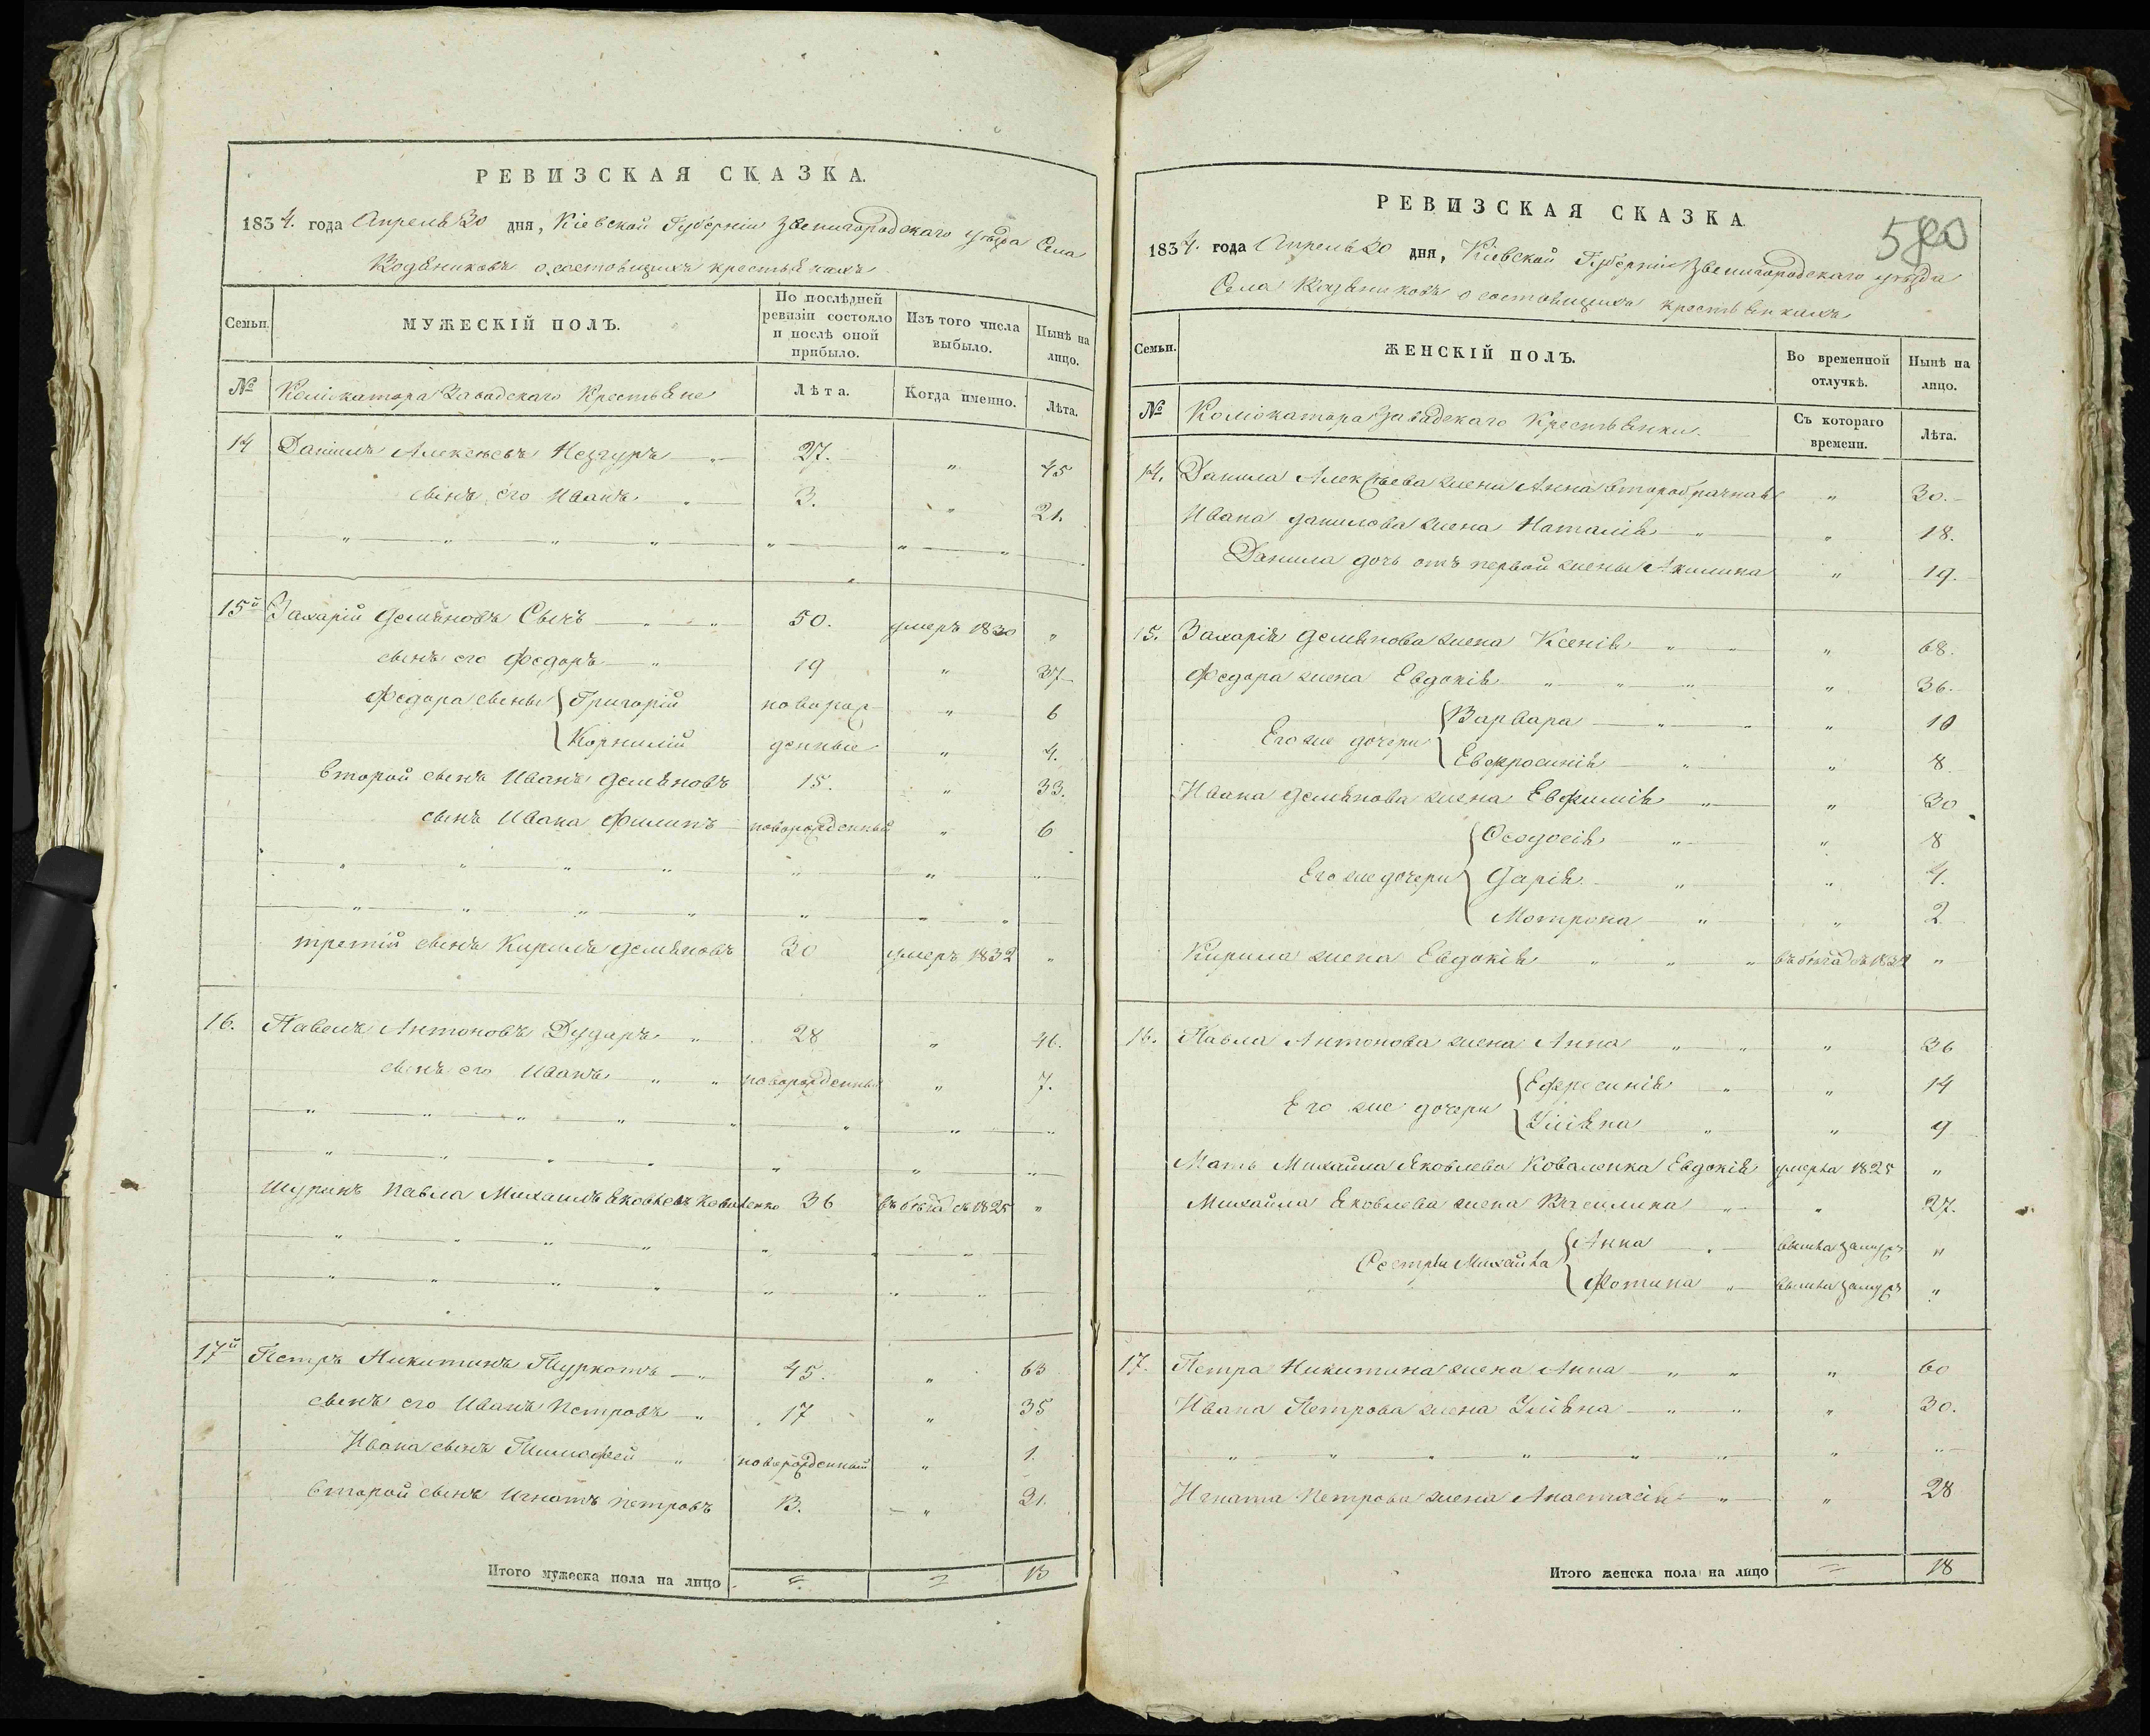 РЕВИЗСКАЯ СКАЗКА.
1834. года Апреля 30 дня, Кіевской Губерніи Звенигородскаго уѣзда Села
Водяниковъ о состоящихъ крестьянахъ
Семьи.
МУЖЕСКІЙ ПОЛЪ.
По послѣдней ревизіи состояло и послѣ оной прибыло.
Изъ того числа выбыло.
Нынѣ на лицо.
№ Завадскаго Крестьяне
Лѣта.
Когда именно.
Лѣта.
14 Данилъ Алексѣевъ 27. " 45
сынъ его Иванъ " 3. " 21.
15й Захарій Демьяновъ Сычъ " " 50. умеръ 1830 "
сынъ его Федоръ " 19 " 37
Федора сыны Григорій новорож " 6
Корнилій денные " 4.
второй сынъ Иванъ Демьяновъ 15. " 33.
сынъ Ивана Филипъ новорожденный " 6
третій сынъ Кирилъ Демьяновъ 30 умеръ 1832 "
16. Павелъ Антоновъ Дударъ " 28 " 46.
сынъ его Иванъ " " новорожденный " 7.
Шуринъ Павла Михаилъ Яковлевъ Коваленко 36 въ бѣгахъ съ 1825 "
17й Петръ Никитинъ Туркотъ " 45. " 63
сынъ его Иванъ Петровъ " 17 " 35
Ивана сынъ Тимофей " новорожденный " 1.
второй сынъ Игнатъ Петровъ 13. " 31.
Итого мужеска пола на лицо = = 13
РЕВИЗСКАЯ СКАЗКА
580
1834. года Апреля 30 дня, Кіевской Губерніи Звенигородскаго уѣзда
Села Водяниковъ о состоящихъ крестьянкахъ
Семьи.
ЖЕНСКІЙ ПОЛЪ.
Во временной отлучкѣ.
Нынѣ на лицо.
№ Завадскаго Крестьянки.
Съ котораго времени.
Лѣта.
14. Данила Алексѣева жена Анна второбрачная " 30.
Ивана Данилова жена Наталія " " 18.
Данила дочь отъ первой жены Акилина " 19.
15. Захарія Демьянова жена Ксенія " " " 68.
Федора жена Евдокія " " " " 36.
Его же дочери Варвара " " " 10
Евфросинія " " 8
Ивана Демьянова жена Евфимія " " 30
Его же дочери Феодосія " " 8
Дарія " " 4.
Мотрона " " 2
Кирила жена Евдокія " " " въ бѣгахъ съ 1832 "
16. Павла Антонова жена Анна " " " 36
Его же дочери Ефросинія " " 14
Уліяна " " 9
Мать Михайла Яковлева Коваленка Евдокія умерла 1825 "
Михайла Яковлева жена Василина " " 27.
Сестры Михайла Анна " вышла замужъ "
Фотина " вышла замужъ "
17. Петра Никитина жена Анна " " " 60
Ивана Петрова жена Уліяна " " " 30.
Игната Петрова жена Анастасія " " 28
Итого женска пола на лицо = 18